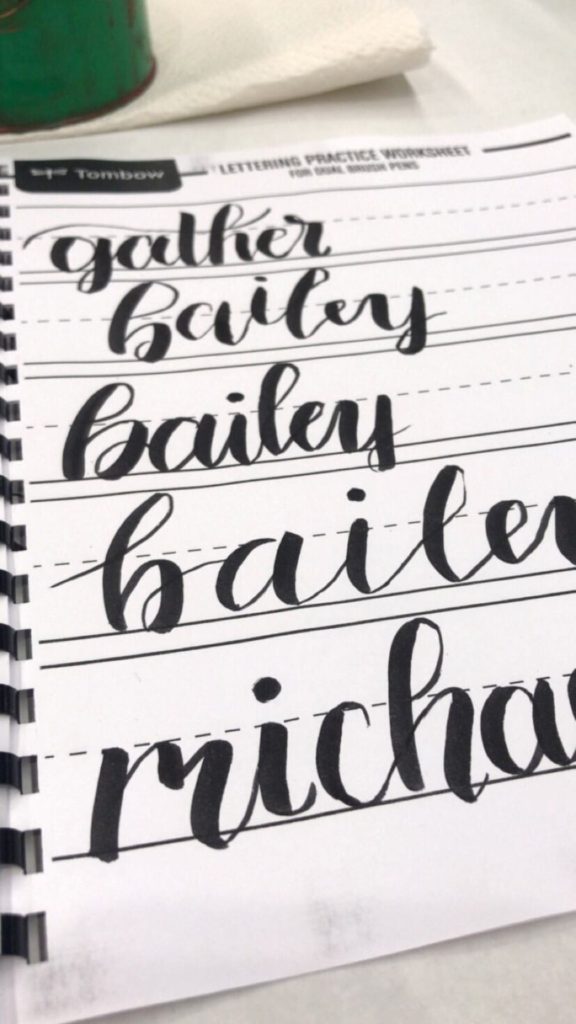 Tombow
LETTERING PRACTICE WORKSHEET
FOR DUAL BRUSH PENS
gather
bailey
bailey
baile
micha